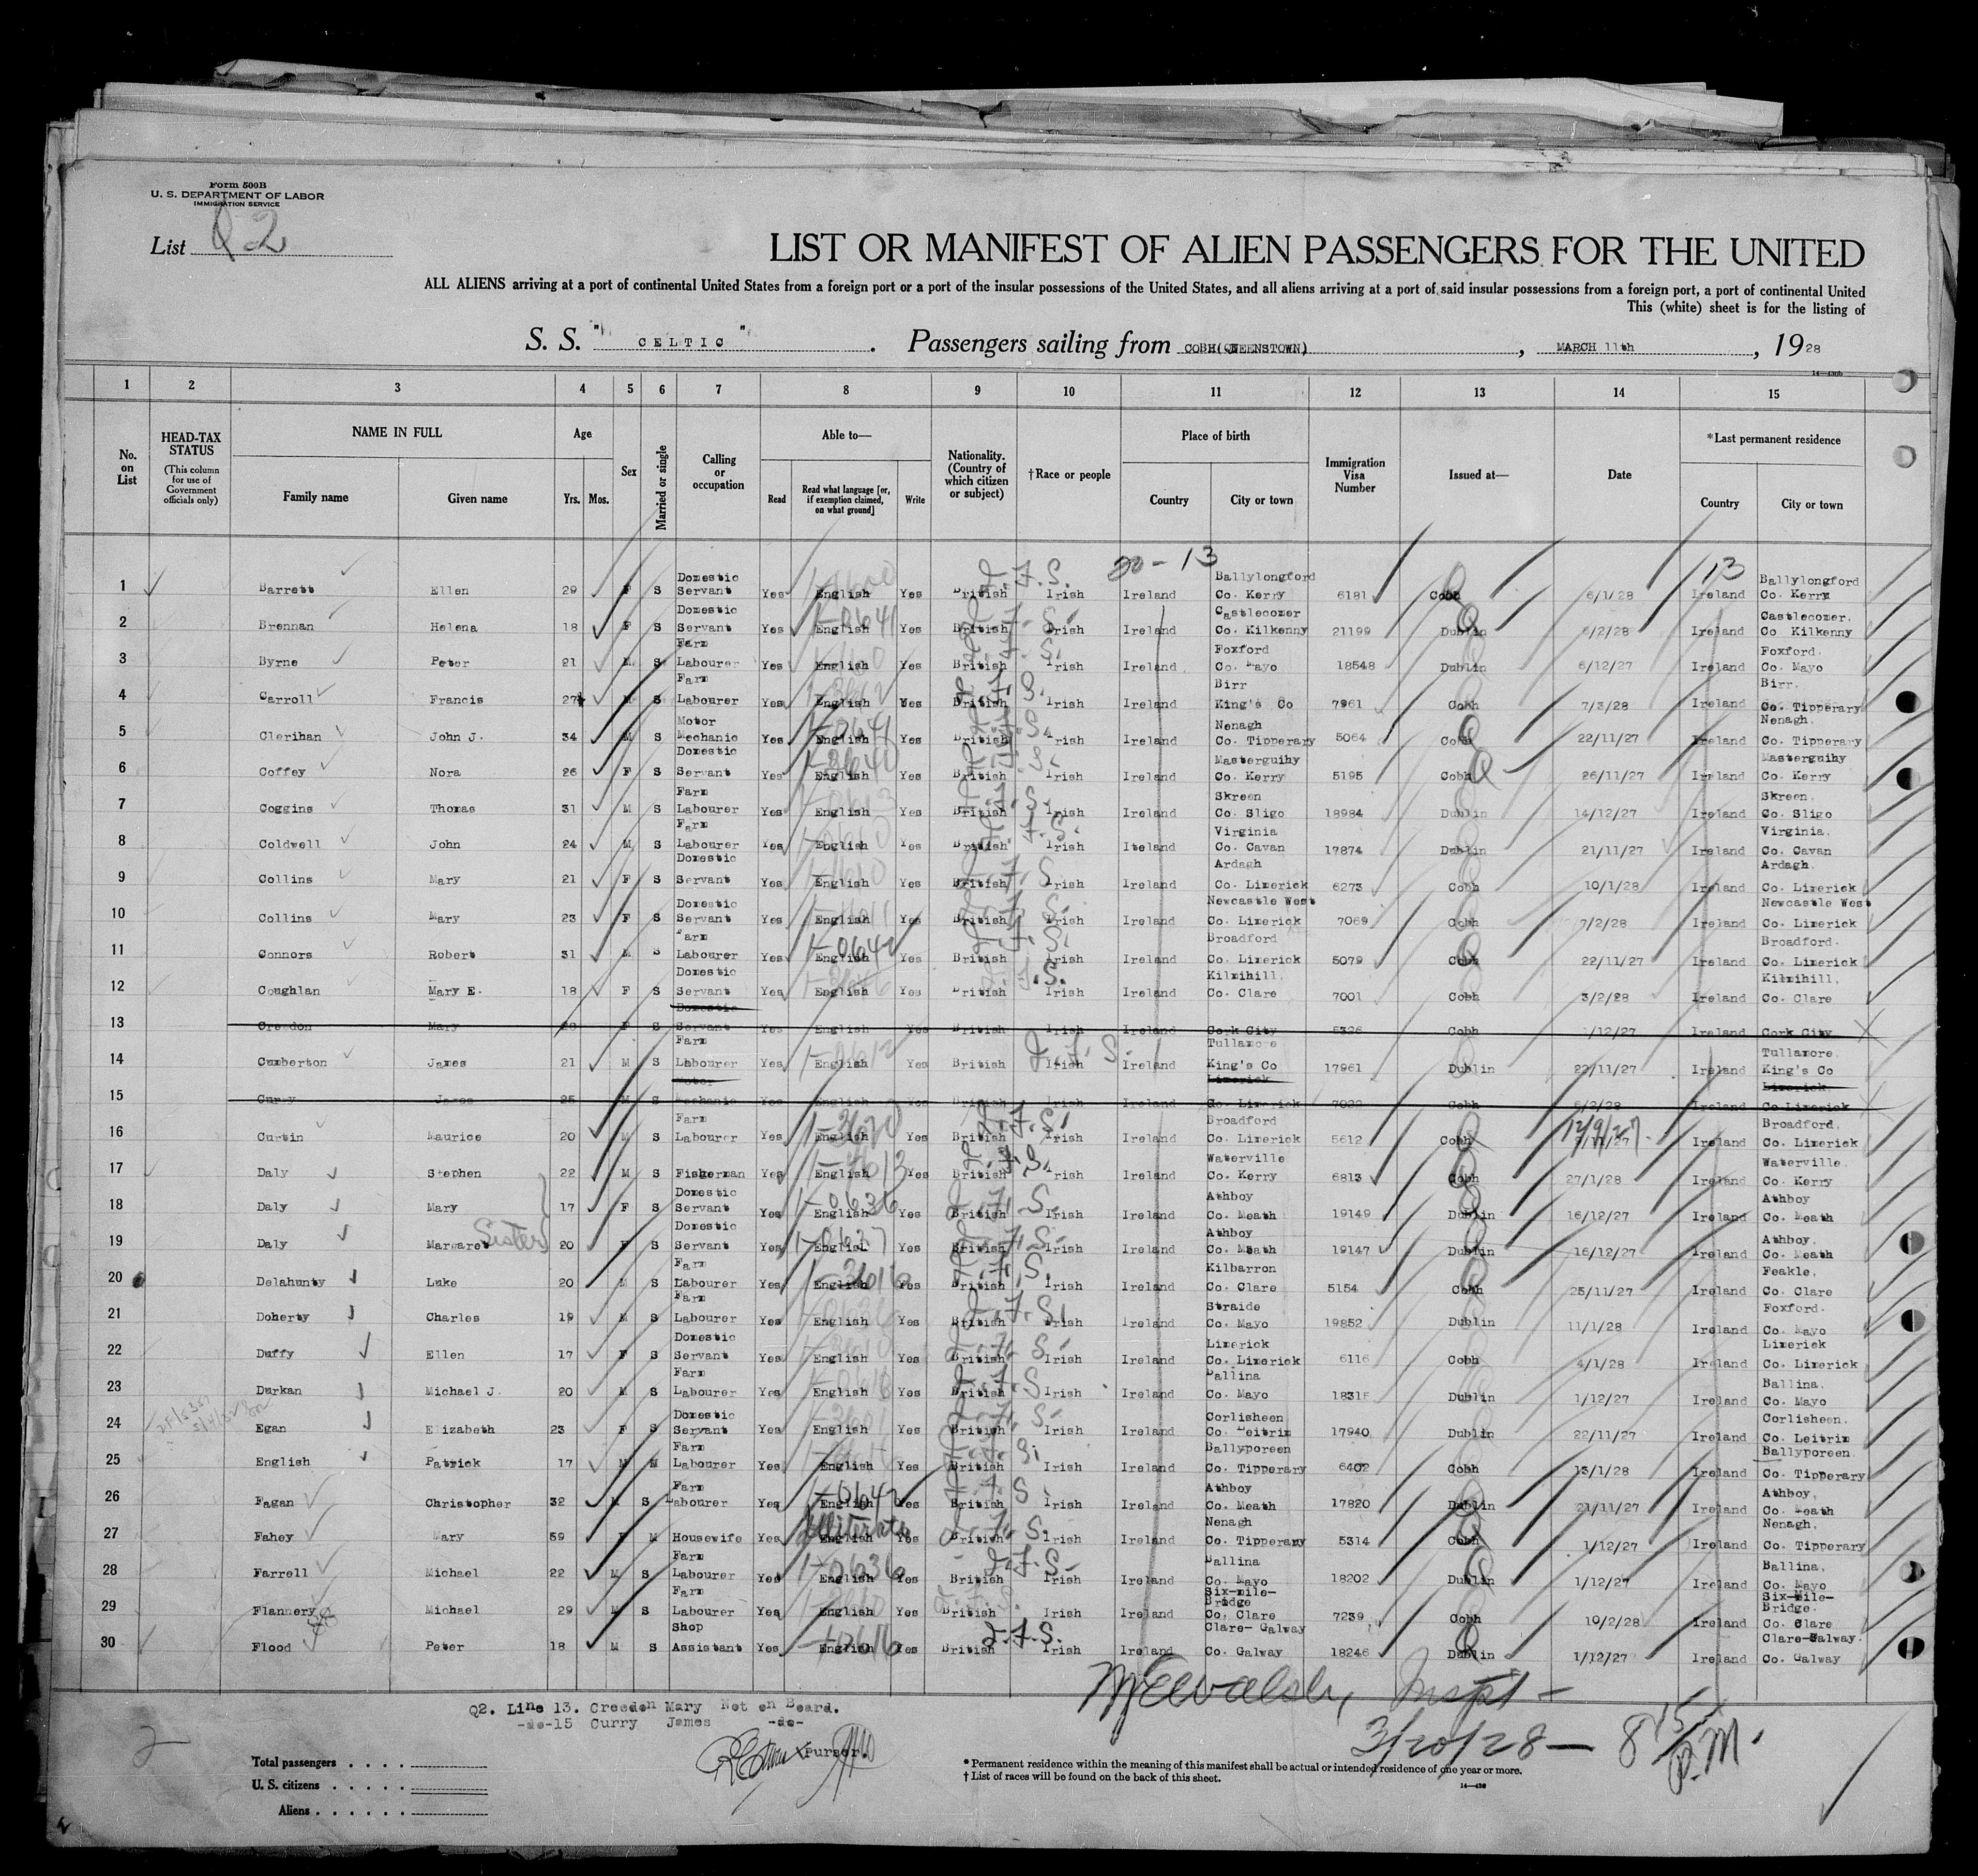 Form 500B
U. S. DEPARTMENT OF LABOR
IMMIGRATION SERVICE
List Q2
LIST OR MANIFEST OF ALIEN PASSENGERS FOR THE UNITED
ALL ALIENS arriving at a port of continental United States from a foreign port or a port of the insular possessions of the United States, and all aliens arriving at a port of said insular possessions from a foreign port, a port of continental United
This (white) sheet is for the listing of
S. S. " CELTIC " . Passengers sailing from COBH(QUEENSTOWN) , MARCH 11th , 1928
14—430b
1 2 3 4 5 6 7 8 9 10 11 12 13 14 15
No. on List HEAD-TAX STATUS (This column for use of Government officials only) NAME IN FULL Family name Given name Age Yrs. Mos. Sex Married or single Calling or occupation Able to— Read Read what language [or, if exemption claimed, on what ground] Write Nationality. (Country of which citizen or subject) †Race or people Place of birth Country City or town Immigration Visa Number Issued at— Date *Last permanent residence Country City or town
20-13 13
1 Barrett Ellen 29 F S Domestic Servant Yes English Yes British I.F.S. Irish Ireland Ballylongford Co. Kerry 6181 Cobh 6/1/28 Ireland Ballylongford Co. Kerry
2 Brennan Helena 18 F S Domestic Servant Yes 1-0641 English Yes British Irish Ireland Castlecomer Co. Kilkenny 21199 Dublin 6/2/28 Ireland Castlecomer. Co Kilkenny
3 Byrne Peter 21 M S Farm Labourer Yes English Yes British Irish Ireland Foxford Co. Mayo 18548 Dublin 6/12/27 Ireland Foxford. Co. Mayo
4 Carroll Francis 27 M S Farm Labourer Yes English Yes British Irish Ireland Birr King's Co 7961 Cobh 7/3/28 Ireland Birr. Co. Tipperary
5 Clerihan John J. 34 M S Motor Mechanic Yes 1-0641 English Yes British Irish Ireland Nenagh Co. Tipperary 5064 Cobh 22/11/27 Ireland Nenagh. Co. Tipperary
6 Coffey Nora 26 F S Domestic Servant Yes English Yes British Irish Ireland Masterguihy Co. Kerry 5195 Cobh 26/11/27 Ireland Masterguihy Co. Kerry
7 Coggins Thomas 31 M S Farm Labourer Yes English Yes British Irish Ireland Skreen Co. Sligo 18984 Dublin 14/12/27 Ireland Skreen. Co. Sligo
8 Coldwell John 24 M S Farm Labourer Yes English Yes British Irish Iteland Virginia Co. Cavan 17874 Dublin 21/11/27 Ireland Virginia. Co. Cavan
9 Collins Mary 21 F S Domestic Servant Yes English Yes British Irish Ireland Ardagh Co. Limerick 6273 Cobh 10/1/28 Ireland Ardagh. Co. Limerick
10 Collins Mary 23 F S Domestic Servant Yes English Yes British Irish Ireland Newcastle West Co. Limerick 7069 Cobh 7/2/28 Ireland Newcastle West Co. Limerick
11 Connors Robert 31 M S Farm Labourer Yes 1-0642 English Yes British Irish Ireland Broadford Co. Limerick 5079 Cobh 22/11/27 Ireland Broadford. Co. Limerick
12 Coughlan Mary E. 18 F S Domestic Servant Yes English Yes British Irish Ireland Kilmihill. Co. Clare 7001 Cobh 3/2/28 Ireland Kilmihill. Co. Clare
13 Creedon Mary F S Domestic Servant Yes English Yes British Irish Ireland Cork City 5326 Cobh 1/12/27 Ireland Cork City
14 Cumberton James 21 M S Farm Labourer Yes English Yes British I.F.S. Irish Ireland Tullamore King's Co 17961 Dublin 22/11/27 Ireland Tullamore. King's Co
15 Curry James 25 M S Motor Mechanic Yes English Yes British Irish Ireland Limerick Co. Limerick Cobh 6/2/28 Ireland Limerick. Co Limerick
16 Curtin Maurice 20 M S Farm Labourer Yes English Yes British I.F.S. Irish Ireland Broadford Co. Limerick 5612 Cobh 12/9/27. Ireland Broadford. Co. Limerick
17 Daly Stephen 22 M S Fisherman Yes English Yes British Irish Ireland Waterville Co. Kerry 6813 Cobh 27/1/28 Ireland Waterville. Co. Kerry
18 Daly Mary 17 F S Domestic Servant Yes 1-0636 English Yes British Irish Ireland Athboy Co. Meath 19149 Dublin 16/12/27 Ireland Athboy Co. Meath
19 Daly Margaret Sisters 20 F S Domestic Servant Yes 1-0637 English Yes British Irish Ireland Athboy Co. Meath 19147 Dublin 16/12/27 Ireland Athboy. Co. Meath
20 Delahunty Luke 20 M S Farm Labourer Yes English Yes British Irish Ireland Kilbarron Co. Clare 5154 Cobh 25/11/27 Ireland Feakle. Co. Clare
21 Doherty Charles 19 M S Farm Labourer Yes English Yes British Irish Ireland Straide Co. Mayo 19852 Dublin 11/1/28 Ireland Foxford. Co. Mayo
22 Duffy Ellen 17 F S Domestic Servant Yes English Yes British Irish Ireland Limerick Co. Limerick 6116 Cobh 4/1/28 Ireland Limerick Co. Limerick
23 Durkan Michael J. 20 M S Farm Labourer Yes English Yes British Irish Ireland Ballina Co. Mayo Dublin 1/12/27 Ireland Ballina. Co. Mayo
24 Egan Elizabeth 23 F S Domestic Servant Yes English Yes British Irish Ireland Corlisheen Co. Leitrim 17940 Dublin 22/11/27 Ireland Corlisheen. Co. Leitrim
25 English Patrick 17 M M Farm Labourer Yes English Yes British Irish Ireland Ballyporeen Co. Tipperary 6402 Cobh 13/1/28 Ireland Ballyporeen. Co. Tipperary
26 Fagan Christopher 32 M S Farm Labourer Yes 1-0642 English Yes British Irish Ireland Athboy Co. Meath 17820 Dublin 21/11/27 Ireland Athboy. Co. Meath
27 Fahey Mary 59 F M Housewife Yes Illiterate English Yes British Irish Ireland Nenagh Co. Tipperary 5314 Cobh 1/12/27 Ireland Nenagh. Co. Tipperary
28 Farrell Michael 22 M S Farm Labourer Yes 1-0636 English Yes British I.F.S. Irish Ireland Ballina Co. Mayo 18202 Dublin 1/12/27 Ireland Ballina. Co. Mayo
29 Flannery Michael 29 M S Farm Labourer Yes English Yes British Irish Ireland Six-mile-Bridge Co. Clare 7239 Cobh 10/2/28 Ireland Six-Mile-Bridge. Co. Clare
30 Flood Peter 18 M S Shop Assistant Yes English Yes British I.F.S. Irish Ireland Clare-Galway Co. Galway 18246 Dublin 1/12/27 Ireland Clare-Galway. Co. Galway
Q2. Line 13. Creedon Mary Not on Board.
-do-15 Curry James -do-
Purser.
Inspt -
3/20/28 — 8 15/P.M.
2
Total passengers
U. S. citizens
Aliens
* Permanent residence within the meaning of this manifest shall be actual or intended residence of one year or more.
† List of races will be found on the back of this sheet.
14—430